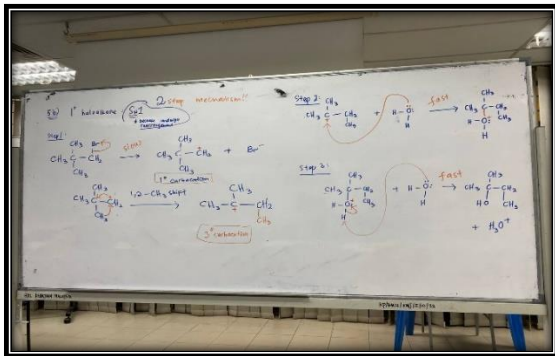 1° haloalkane SN1
2 step mechanism
Step 1:
CH3
Br
CH3 C CH2
CH3
slow
CH3
CH3 C CH2 + Br-
CH3
1° carbocation
CH3
CH3 C CH2
CH3
1,2-CH3 shift
CH3
CH3 - C - CH2
+
CH3
3° carbocation
Step 2:
CH3
CH3 C CH2
+
CH3
+ H - O:
H
fast
CH3
CH3 C CH2
H - O: CH3
H
Step 3:
CH3
CH3 C CH2
H - O CH3
H
+ H - O:
H
fast
CH3
CH3 C CH2
HO CH3
+ H3O+